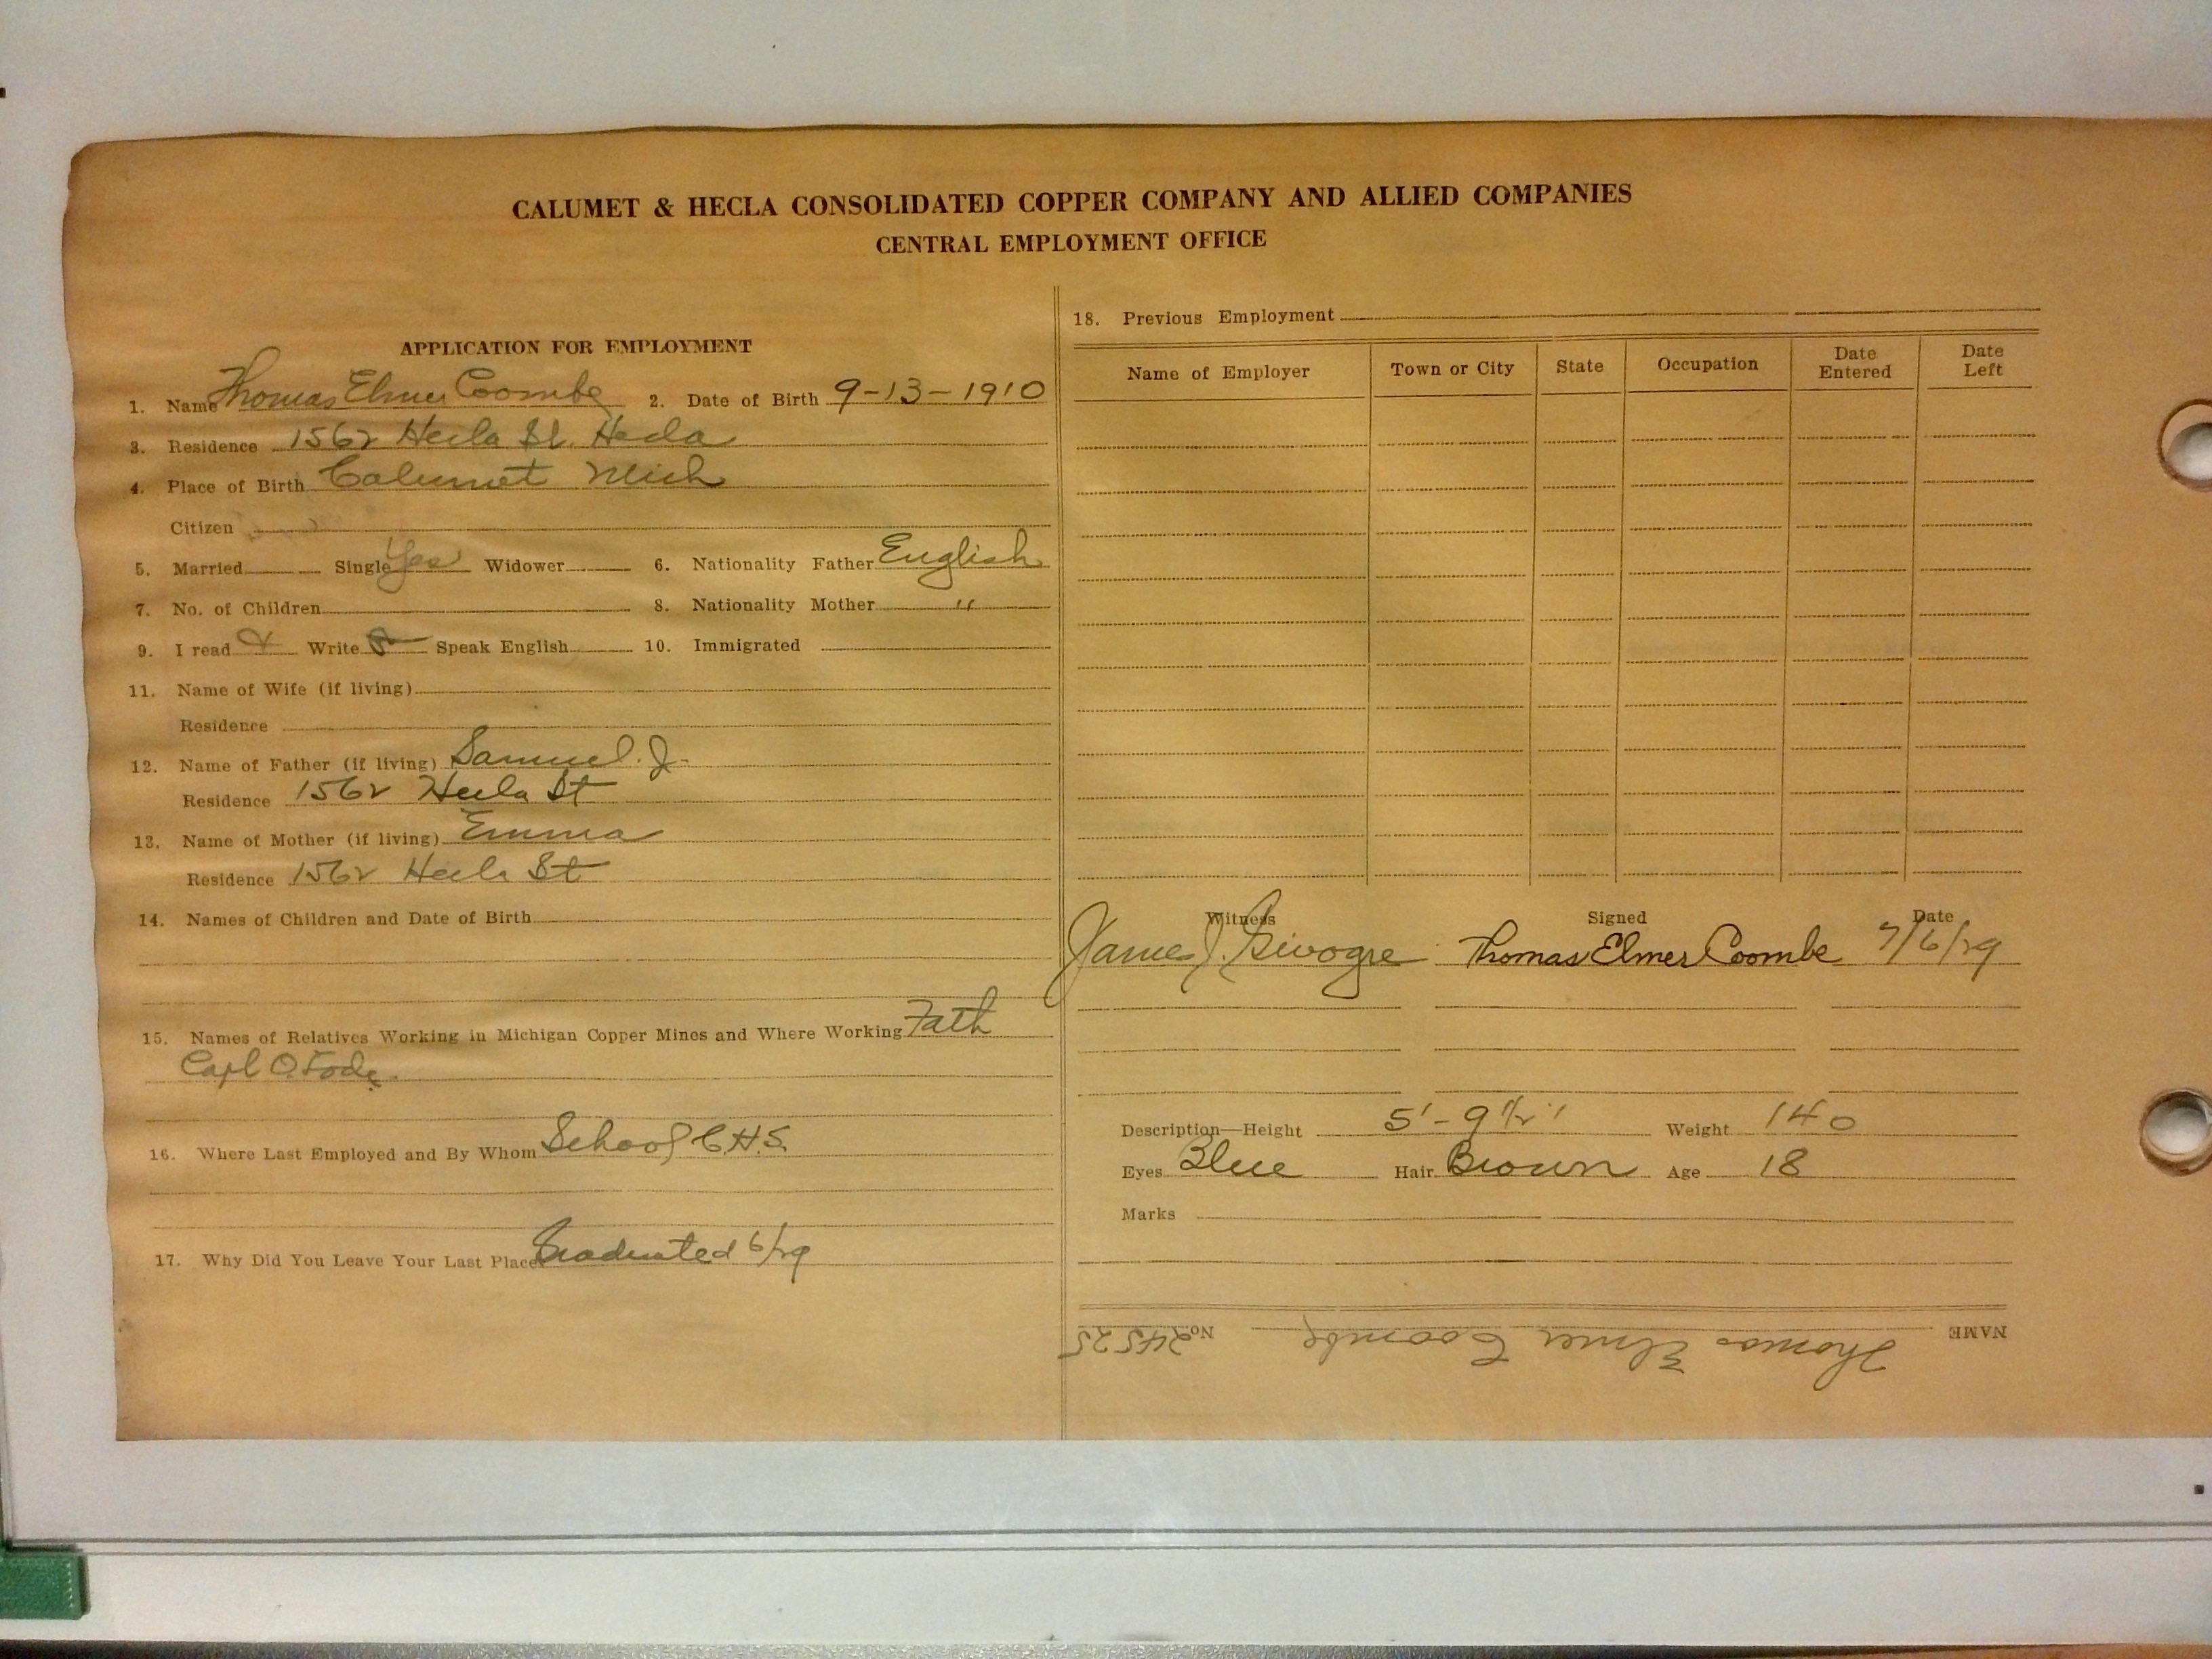 CALUMET & HECLA CONSOLIDATED COPPER COMPANY AND ALLIED COMPANIES
CENTRAL EMPLOYMENT OFFICE
APPLICATION FOR EMPLOYMENT
1. Name Thomas Elmer Coombe 2. Date of Birth 9-13-1910
3. Residence 1562 Hecla St. Hecla
4. Place of Birth Calumet Mich
Citizen
5. Married Single Yes Widower 6. Nationality Father English
7. No. of Children 8. Nationality Mother "
9. I read Write Speak English 10. Immigrated
11. Name of Wife (if living)
Residence
12. Name of Father (if living) Samuel. J.
Residence 1562 Hecla St
13. Name of Mother (if living) Emma
Residence 1562 Hecla St
14. Names of Children and Date of Birth
15. Names of Relatives Working in Michigan Copper Mines and Where Working Fath
16. Where Last Employed and By Whom School C.H.S.
17. Why Did You Leave Your Last Place Graduated 6/29
18. Previous Employment
Name of Employer Town or City State Occupation Date Entered Date Left
Witness Signed Date
James J. Thomas Elmer Coombe 7/6/29
Description—Height 5'-9 1/2" Weight 140
Eyes Blue Hair Brown Age 18
Marks
NAME Thomas Elmer Coombe No. 24525